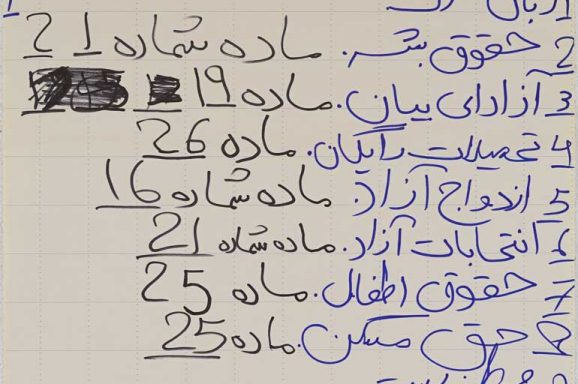 2 حقوق بشر. ماده شماره 1 2
3 آزادای بیان. ماده 19
4 تحصیلات رایگان. ماده 26
5 ازدواج آزاد. ماده شماره 16
6 انتخابات آزاد. ماده شماره 21
7 حقوق اطفال. ماده 25
8 حق مسکن. ماده 25